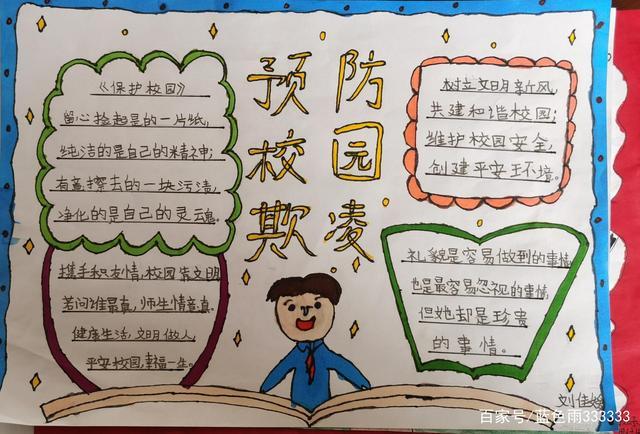 预防
校园
欺凌
《保护校园》
留心捡起是的一片纸,
纯洁的是自己的精神;
有意擦去的一块污渍,
净化的是自己的灵魂。
携手积友情,校园常文明
若问谁最真,师生情意真。
健康生活,文明做人,
平安校园,幸福一生。
树立文明新风,
共建和谐校园;
维护校园安全,
创建平安环境。
礼貌是容易做到的事情
也是最容易忽视的事情
但她却是珍贵
的事情。
刘佳
百家号/蓝色雨333333